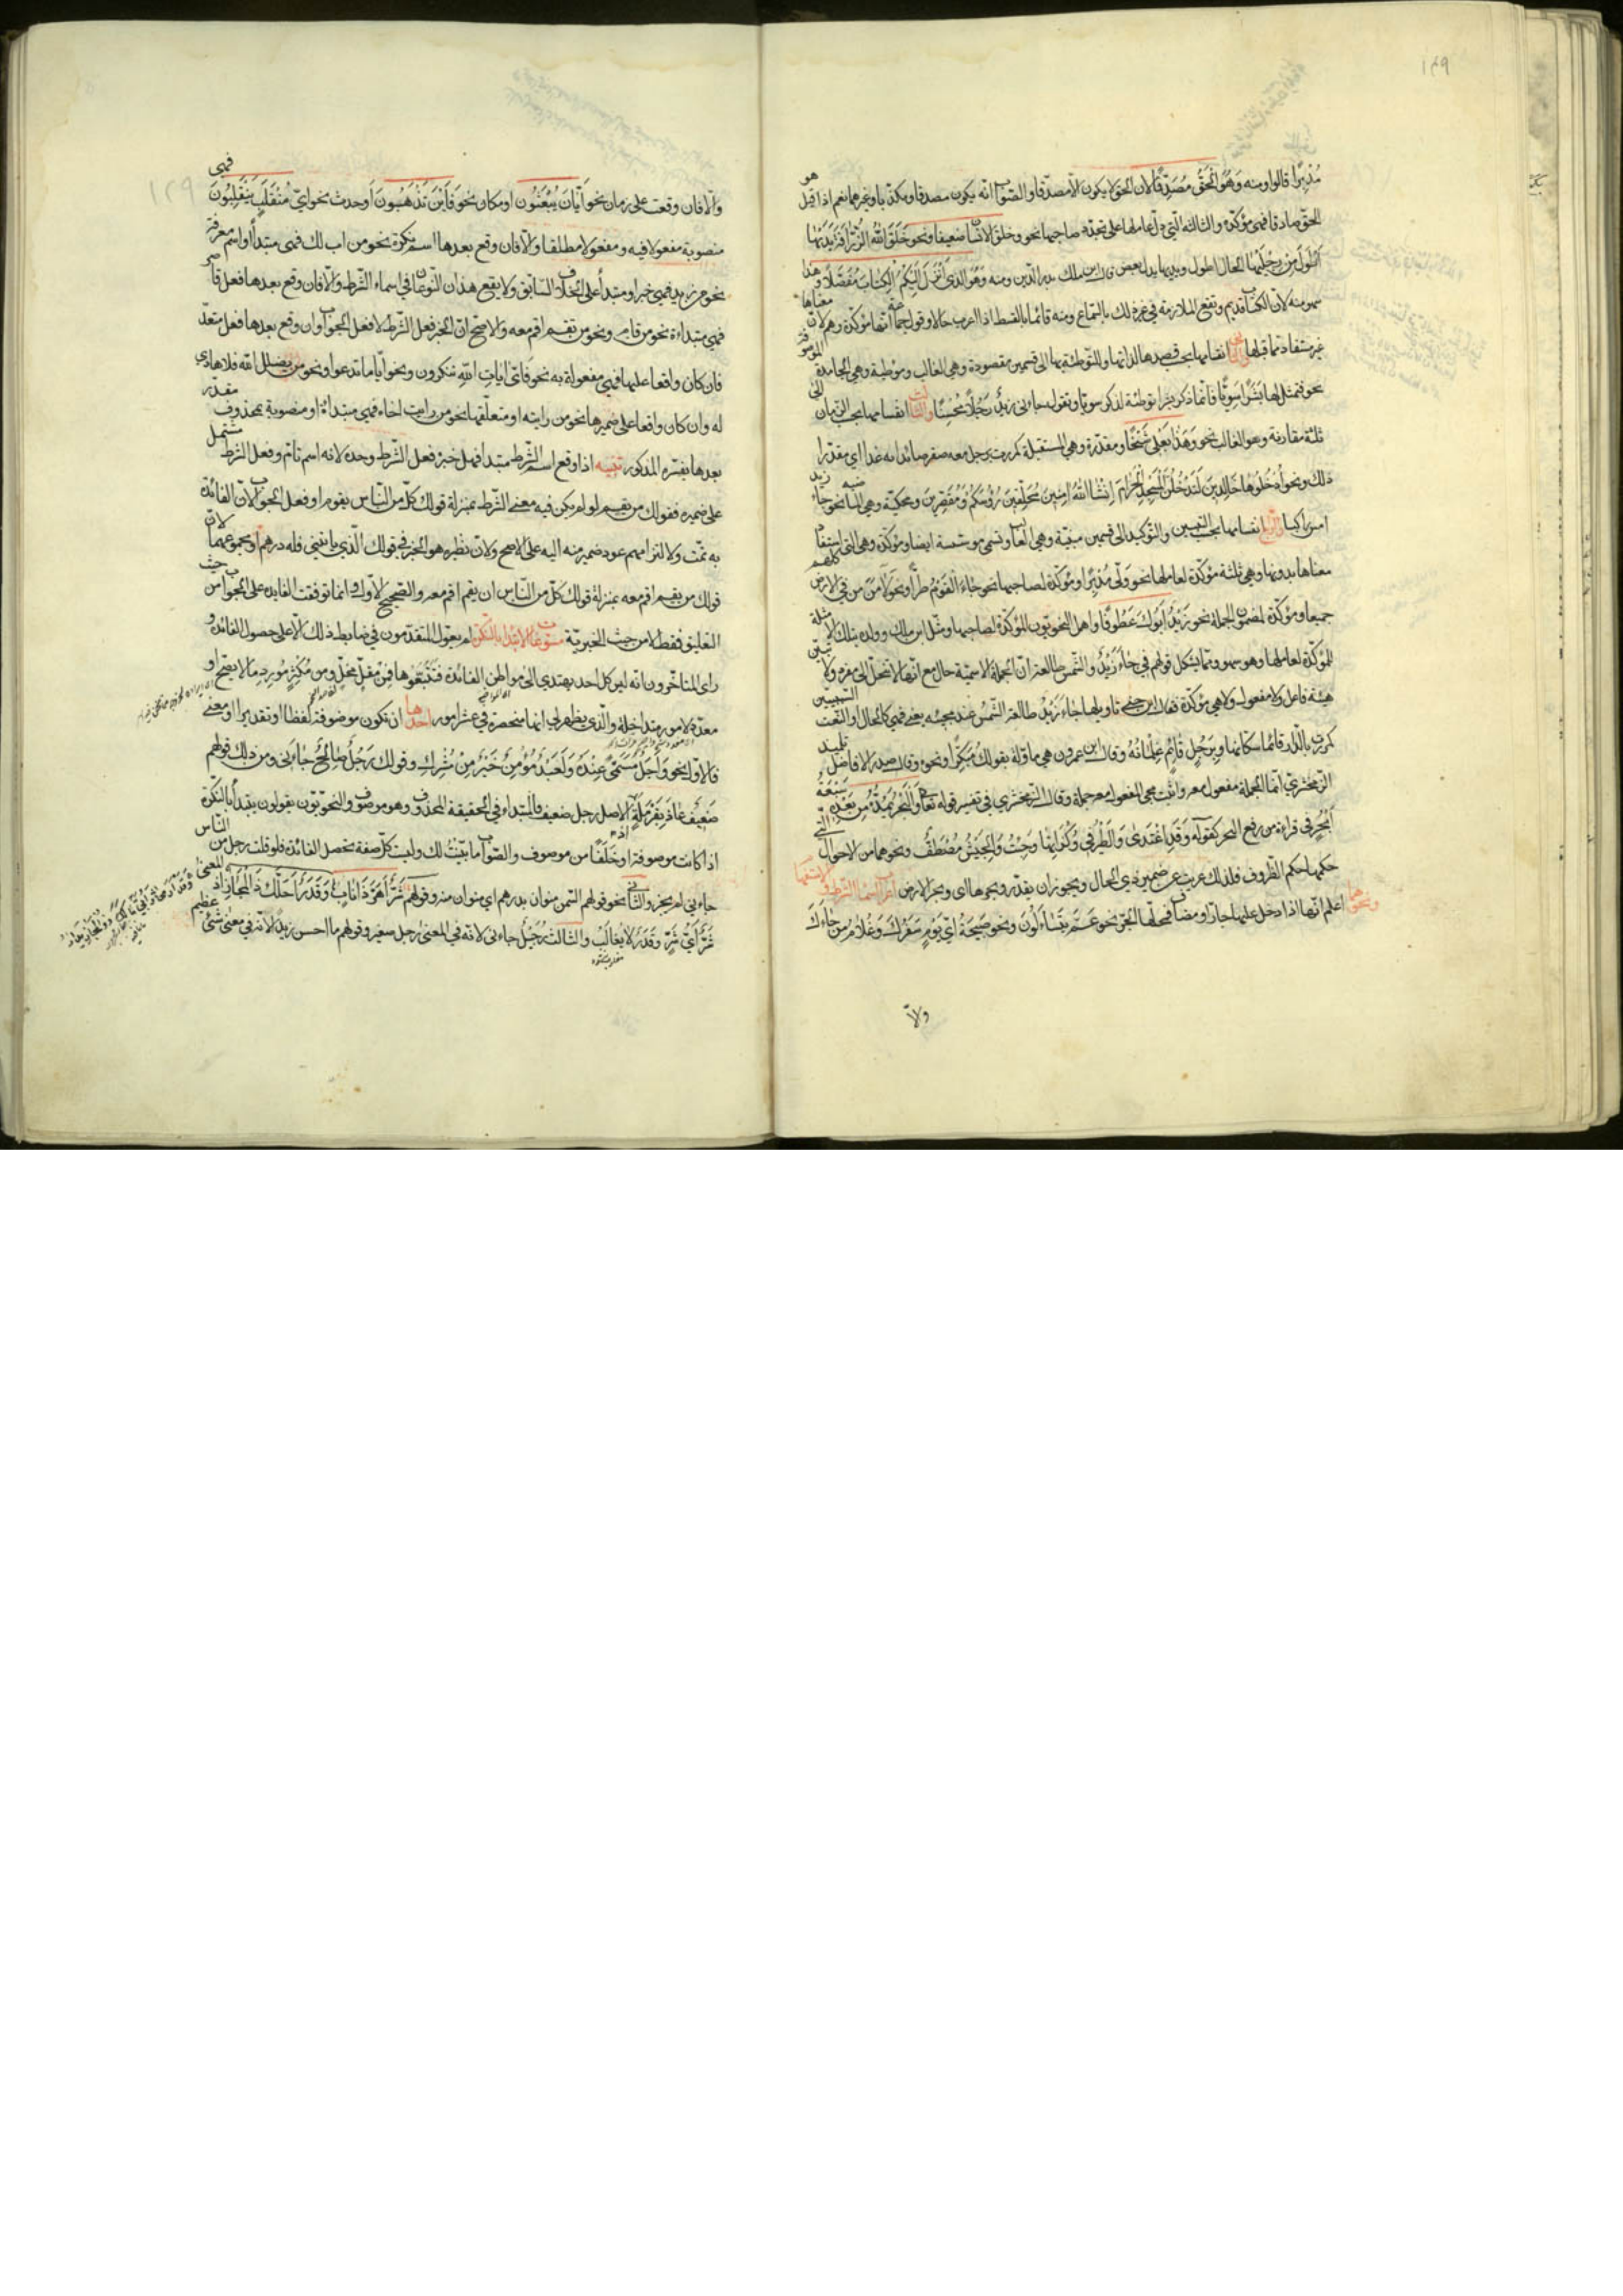 ١٤٩
مُدْبِرًا قالوا ومنه وَهُوَ الْحَقُّ مُصَدِّقًا لان الحق لا يكون الا مصدقا والصواب انه يكون مصدقا ومكذبا وغيرهما نعم اذا قيل هو
الحق صادقا فهي مؤكدة والثالثة التي دل عاملها على تجدد صاحبها نحو وخلق الانسان ضعيفا ونحو خَلَقَ اللهُ الزرافة يديها
أطول من رجليها الحال اطول ويديها بدل بعض قال ابن مالك بدر الدين ومنه وَهُوَ الَّذِي أَنْزَلَ إِلَيْكُمُ الْكِتَابَ مُفَصَّلًا وهذا
سهو منه لان الكتاب قديم وتقع الملازمة في غير ذلك بالسماع ومنه قائما بالقسط اذا اعرب حالا وقول جماعة انها مؤكدة وهم لان معناها
غير مستفاد مما قبلها الثاني انقسامها بحسب قصدها لذاتها وللتوطئة بها الى قسمين مقصودة وهي الغالب وموطئة وهي الجامدة الموصوفة
نحو فتمثل لها بَشَرًا سَوِيًّا فانما ذكر بشرا توطئة لذكر سويا وتقول جاءني زيد رجلا محسنا والثالث انقسامها بحسب الزمان الى
ثلثة مقارنة وهو الغالب نحو وَهَذَا بَعْلِي شَيْخًا ومقدرة وهي المستقبلة كمررت برجل معه صقر صائدا به غدا اي مقدرا
ذلك ونحو ادْخُلُوهَا خَالِدِينَ لَتَدْخُلُنَّ الْمَسْجِدَ الْحَرَامَ إِنْ شَاءَ اللهُ آمِنِينَ مُحَلِّقِينَ رُؤُسَكُمْ وَمُقَصِّرِينَ ومحكية وهي الماضية نحو جاء زيد
امس راكبا والرابع انقسامها بحسب التبيين والتوكيد الى قسمين مبينة وهي الغالب وتسمى مؤسسة ايضا ومؤكدة وهي التي يستفاد
معناها بدونها وهي ثلثة مؤكدة لعاملها نحو وَلَّى مُدْبِرًا ومؤكدة لصاحبها نحو جَاءَ الْقَوْمُ طُرًّا ونحو لَآمَنَ مَنْ فِي الْأَرْضِ كلهم
جميعا ومؤكدة لمضمون الجملة نحو زَيْدٌ أَبُوكَ عَطُوفًا واهمل النحويون المؤكدة لصاحبها ومثل ابن مالك وولده بتلك الامثلة
للمؤكدة لعاملها وهو سهو ومما يشكل قولهم في جاء زيد والشمس طالعة ان الجملة الاسمية حال مع انها لا تنحل الى مفرد ولا تبين
هيئة فاعل ولا مفعول ولا هي مؤكدة فقال ابن جني تاويلها جاء زيد طالعة الشمس عند مجيئه يعني فهي كالحال والنعت السببيين
كمررت بالدار قائما سكانها وبرجل قائم غلمانه وقال ابن عمرون هي ماولة بقولك مبكرا ونحوه وقال صدر الافاضل تلميذ
الزمخشري انما الجملة مفعول معه واثبت مجي المفعول معه جملة وقال الزمخشري في تفسير قوله تعالى وَالْبَحْرُ يَمُدُّهُ مِنْ بَعْدِهِ سَبْعَةُ
أَبْحُرٍ في قراءة من رفع البحر كقوله وَقَدْ اغْتَدِي وَالطَّيْرُ فِي وُكُنَاتِهَا وَجِئْتُ وَالْجَيْشُ مُصْطَفٌّ ونحوهما من الاحوال التي
حكمها حكم الظروف فلذلك عريت عن ضمير ذي الحال ويجوز ان يقدر وبحرها اي وبحر الارض اعراب اسماء الشرط والاستفهام
ونحوهما اعلم انها اذا دخل عليها جار او مضاف فمحلها الجر نحو عَمَّ يَتَسَاءَلُونَ ونحو صَبِيحَةَ أَيِّ يَوْمٍ سَفَرُكَ وَغُلَامُ مَنْ جَاءَكَ
والا
والا فان وقعت على زمان نحو أَيَّانَ يُبْعَثُونَ او مكان نحو فَأَيْنَ تَذْهَبُونَ او حدث نحو أيَّ مُنْقَلَبٍ يَنْقَلِبُونَ فهي
منصوبة مفعولا فيه ومفعولا مطلقا والا فان وقع بعدها اسم نكرة نحو من اب لك فهي مبتدأ او اسم معرفة
نحو من زيد فهي خبر او مبتدأ على الخلاف السابق ولا يقع هذان النوعان في اسماء الشرط والا فان وقع بعدها فعل قاصر
فهي مبتداءة نحو من قام ونحو من يقم اقم معه والاصح ان الخبر فعل الشرط لا فعل الجواب وان وقع بعدها فعل متعد
فان كان واقعا عليها فهي مفعولة به نحو فَأَيَّ آيَاتِ اللهِ تنكرون ونحو أيا ما تدعوا ونحو من يضلل الله فلا هادي
له وان كان واقعا على ضميرها نحو من رايته او متعلقها نحو من رايت اخاه فهي مبتداة او منصوبة بمحذوف مقدر
بعدها يفسره المذكور تنبيه اذا وقع اسم الشرط مبتدا فهل خبره فعل الشرط وحده لانه اسم تام وفعل الشرط مشتمل
على ضميره فقولك من يقم لو لم يكن فيه معنى الشرط بمنزلة قولك كل من الناس يقوم او فعل الجواب لان الفائدة
به تمت ولالتزامهم عود ضمير منه اليه على الاصح ولان نظيره هو الخبر في قولك الذي ياتيني فله درهم او مجموعهما لان
قولك من يقم اقم معه بمنزلة قولك كل من الناس ان يقم اقم معه والصحيح الاول وانما توقفت الفايدة على الجواب من حيث
التعليق فقط لا من حيث الخبرية مسوغات الابتداء بالنكرة لم يعول المتقدمون في ضابط ذلك الا على حصول الفائدة و
راى المتاخرون انه ليس كل احد يهتدي الى مواطن الفائدة فتتبعوها فَمِنْ مُقِلٍّ مُخِلٍّ ومن مُكْثِرٍ مُورِدٍ ما لا يصح او
معدد لامور متداخلة والذي يظهر لي انها منحصرة في عشرة امور احدها ان تكون موصوفة لفظا او تقديرا او معنى
فالاول نحو وَأَجَلٌ مُسَمًّى عِنْدَهُ وَلَعَبْدٌ مُؤْمِنٌ خَيْرٌ مِنْ مُشْرِكٍ وقولك رَجُلٌ صَالِحٌ جَاءَنِي ومن ذلك قولهم
ضَعِيفٌ عَاذَ بِقَرْمَلَةٍ اذ الاصل رجل ضعيف فالمبتداء في الحقيقة المحذوف وهو موصوف والنحويون يقولون يبتدأ بالنكرة
اذا كانت موصوفة او خَلَفًا من موصوف والصواب ما بينت لك وليست كل صفة تحصل الفائدة فلو قلت رجل من الناس
جاءني لم يجز والثاني نحو قولهم السمن منوان بدرهم اي منوان منه وقولهم شَرٌّ أَهَرَّ ذَا نَابٍ وَقَدَرٌ أَحَلَّكَ ذَا الْمَجَازِ اذ المعنى
شَرٌّ أَيُّ شَرٍّ وَقَدَرٌ لا يغالب والثالث رُجَيْلٌ جاءني لانه في المعنى رجل صغير وقولهم ما احسن زيدا لانه في معنى شئ عظيم